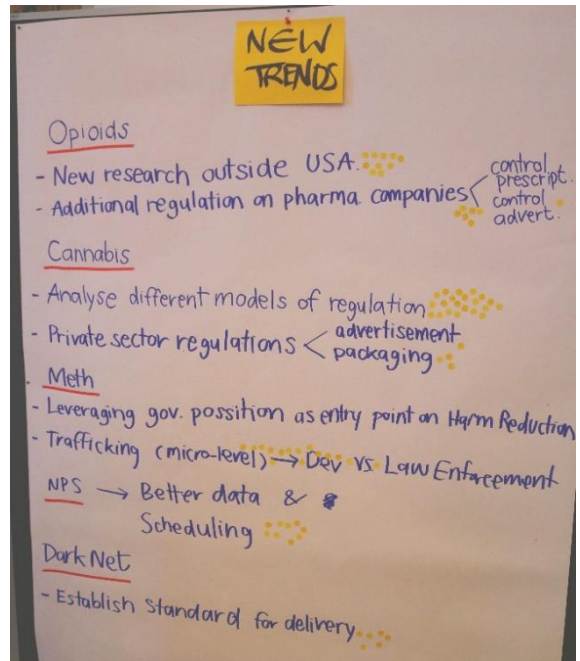 NEW
TRENDS
Opioids
- New research outside USA.
- Additional regulation on pharma companies < control prescript.
control advert.
Cannabis
- Analyse different models of regulation
- Private sector regulations < advertisement
packaging
Meth
- Leveraging gov. possition as entry point on Harm Reduction
- Trafficking (micro-level) → Dev vs. Law Enforcement
NPS → Better data &
Scheduling
Dark Net
- Establish standard for delivery